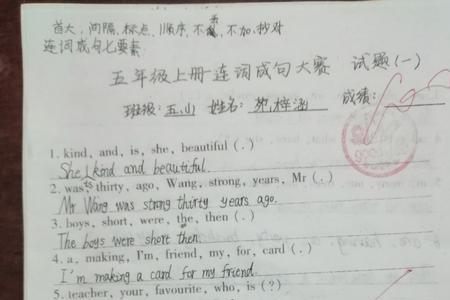 首大、间隔、标点、顺序、不丢、不加、抄对
连词成句七要素
五年级上册-连词成句大赛 试题(一)
班级: 五.山 姓名: 梓涵 成绩:
1. kind, and, is, she, beautiful ( . )
She is kind and beautiful.
2. was, thirty, ago, Wang, strong, years, Mr ( . )
Mr Wang was strong thirty years ago.
3. boys, short, were, the, then ( . )
The boys were short then.
4. a, making, I'm, friend, my, for, card ( . )
I'm making a card for my friend.
5. teacher, your, favourite, who, is ( ? )